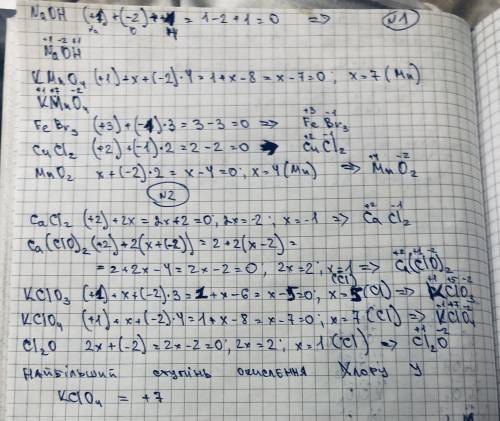 NaOH (+1)+(-2)++1 = 1-2+1=0 => №1
Na O H
+1 -2 +1
NaOH
KMnO4 (+1)+x+(-2)·4=1+x-8=x-7=0; x=7(Mn)
+1 +7 -2
KMnO4
+3 -1
FeBr3 (+3)+(-1)·3=3-3=0 => FeBr3
+2 -1
CuCl2 (+2)+(-1)·2=2-2=0 => CuCl2
+4 -2
MnO2 x+(-2)·2=x-4=0; x=4(Mn) => MnO2
№2
+2 -1
CaCl2 (+2)+2x=2x+2=0; 2x=-2; x=-1 => CaCl2
Ca(ClO)2 (+2)+2(x+(-2))=2+2(x-2)=
+2 +1 -2
=2+2x-4=2x-2=0, 2x=2; x=1 (Cl) => Ca(ClO)2
+1 +5 -2
KClO3 (+1)+x+(-2)·3=1+x-6=x-5=0; x=5(Cl) => KClO3
+1 +7 -2
KClO4 (+1)+x+(-2)·4=1+x-8=x-7=0; x=7(Cl) => KClO4
+1 -2
Cl2O 2x+(-2)=2x-2=0; 2x=2; x=1(Cl) => Cl2O
Найбільший ступінь окислення Хлору у
KClO4 = +7